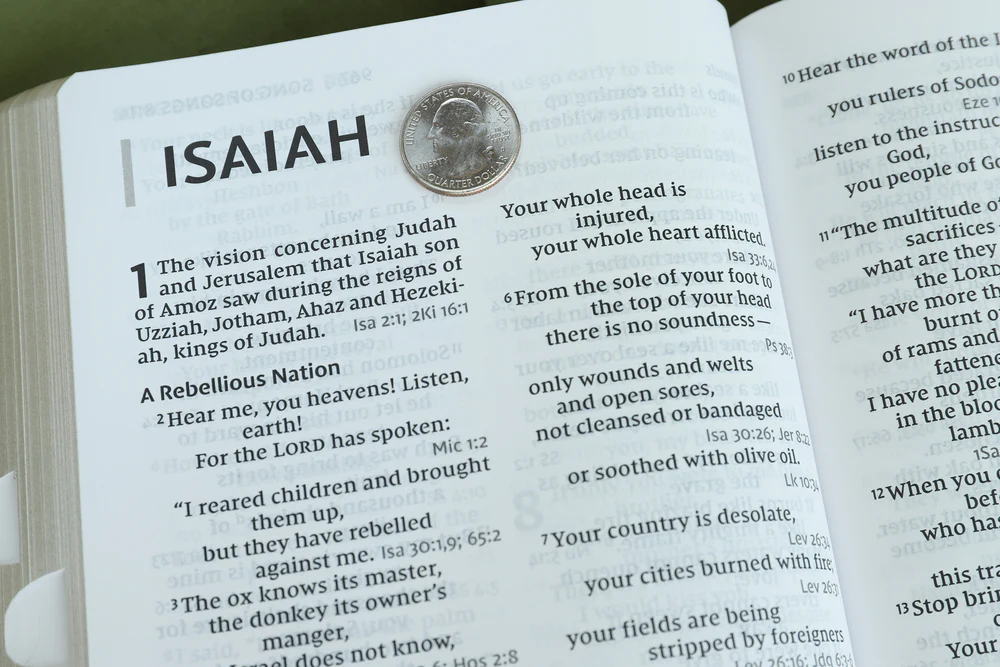 ISAIAH
UNITED STATES OF AMERICA
LIBERTY
QUARTER DOLLAR
1 The vision concerning Judah
and Jerusalem that Isaiah son
of Amoz saw during the reigns of
Uzziah, Jotham, Ahaz and Hezeki-
ah, kings of Judah. Isa 2:1; 2Ki 16:1
A Rebellious Nation
2 Hear me, you heavens! Listen,
earth!
For the LORD has spoken:
Mic 1:2
“I reared children and brought
them up,
but they have rebelled
against me. Isa 30:1,9; 65:2
3 The ox knows its master,
the donkey its owner’s
manger,
Israel does not know,
Hos 2:8
Your whole head is
injured,
your whole heart afflicted.
Isa 33:6,24
6 From the sole of your foot to
the top of your head
there is no soundness—
Ps 38:3
only wounds and welts
and open sores,
not cleansed or bandaged
Isa 30:26; Jer 8:22
or soothed with olive oil.
Lk 10:34
7 Your country is desolate,
Lev 26:34
your cities burned with fire;
Lev 26:31
your fields are being
stripped by foreigners
Lev 26:16; Jdg 6:3-6
10 Hear the word of the
you rulers of Sodo
Eze 1
listen to the instruc
God,
you people of Go
11 “The multitude of
sacrifices
what are they
the LORD
“I have more th
burnt of
of rams and
fattene
I have no plea
in the bloo
lamb
1Sa
12 When you
bef
who has
this tra
13 Stop brin
Your